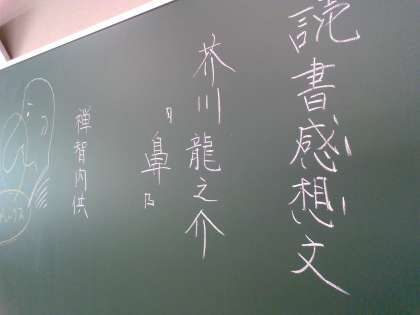 読書感想文
芥川龍之介
"鼻"
禅智内供